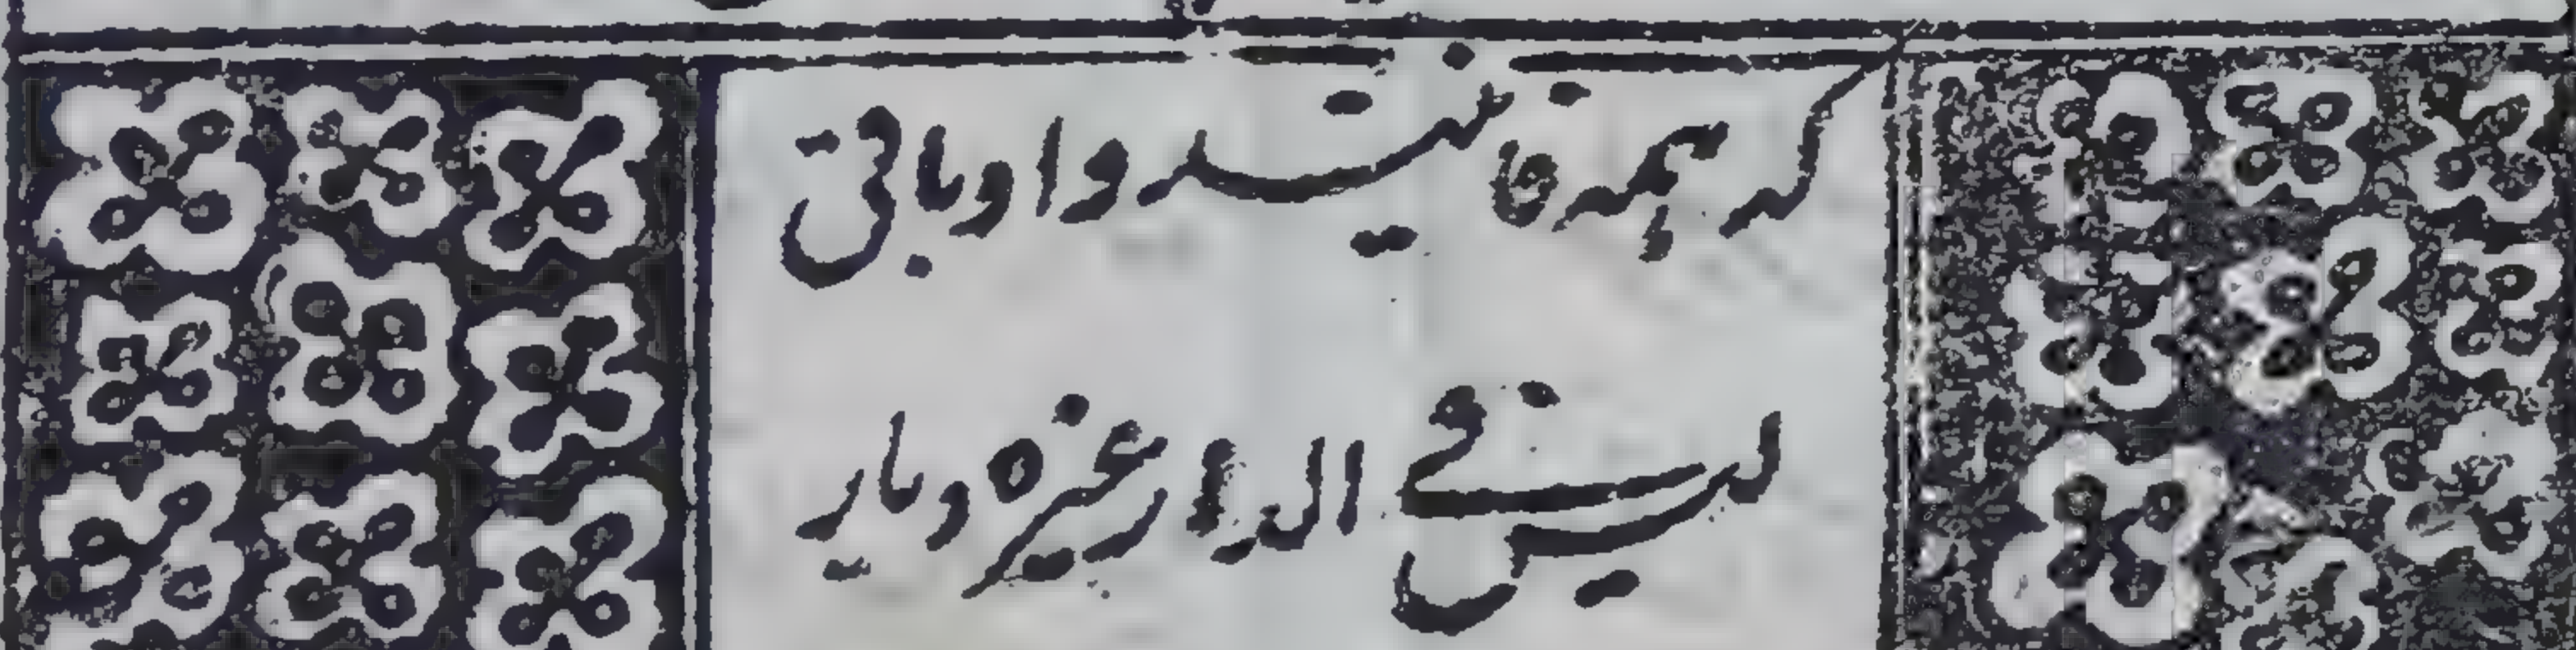 که همه فانیند و او باقی
لیس فی الدار غیره دیار